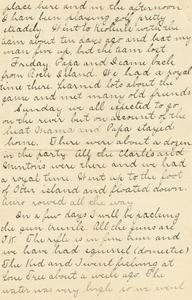 place here and in the afternoon
I have been playing golf pretty
steadily. Went to Rochelle with the
team about ten days ago and had my
man five up, but the team lost
Friday Papa and I came back
from Rock Island. We had a royal
time there, learned lots about the
game and met many old friends
Sunday we all expected to go
on the river but on account of the
heat Mama and Papa stayed
home. There were about a dozen
in the party. All the Clarks and
Huntons were there and we had
a royal time. Went up to the foot
of Otter island and floated down.
rowed all the way
In a few days I will be packing
the gun trunk. All the guns are
O.K. The rifle is in fine trim and
we have had squirrel (domestic)
The Kid and I went fishing at
Lone Tree about a week ago. The
water was very high so we went